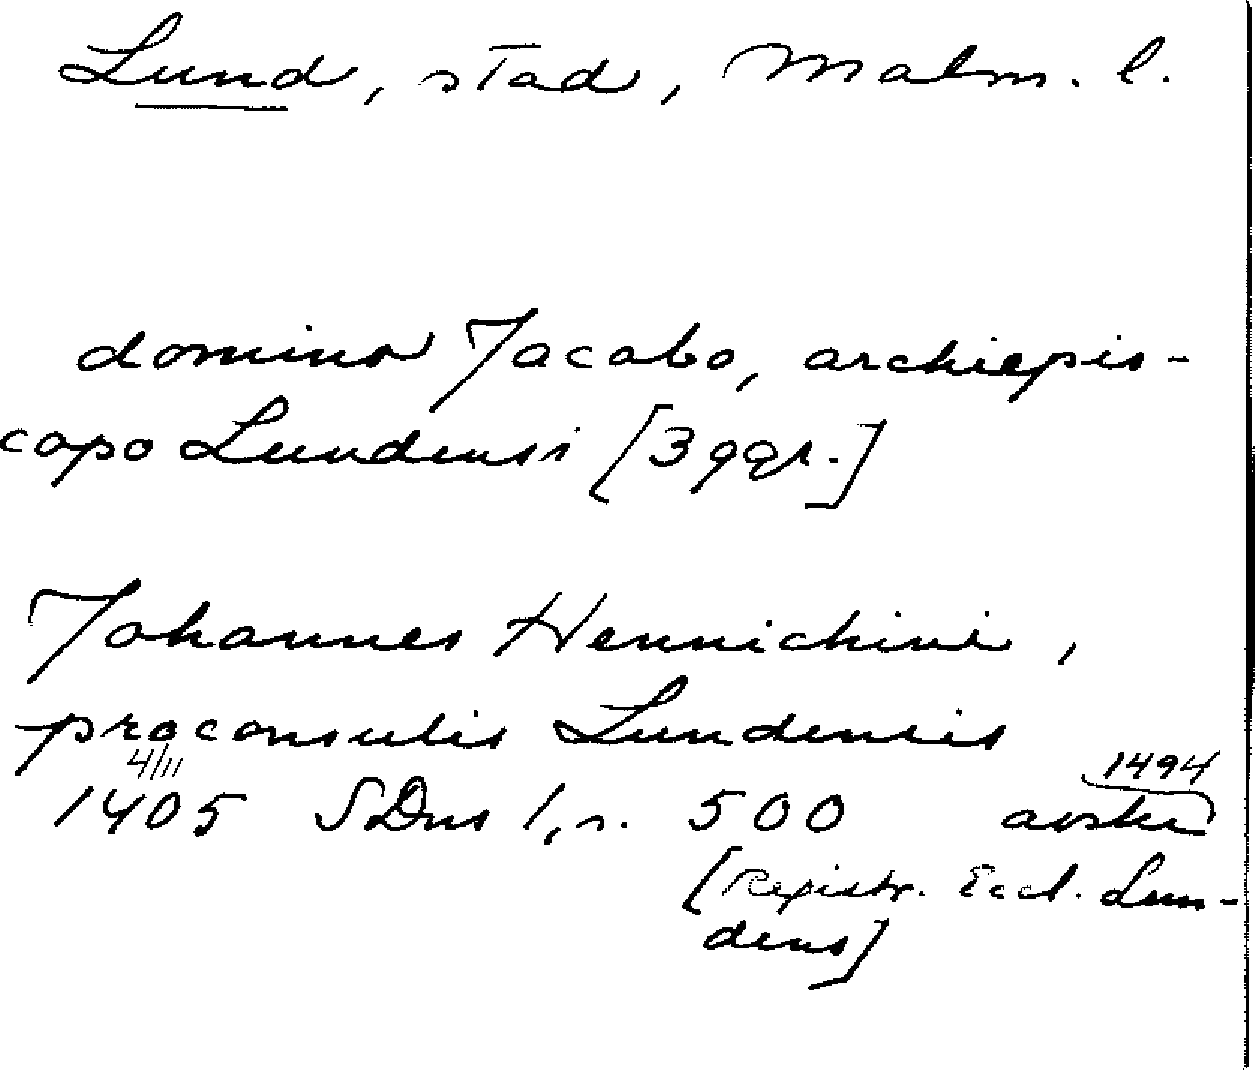 Lund, stad, Malm. l.
domino Jacobo, archiepis-
copo Lundensi [3 ggr.]
Johannes Hennichini,
proconsulis Lundensis
4/11
1494
1405 SDns 1, s. 500 avskr
[Registr. Eccl. Lun-
dens]